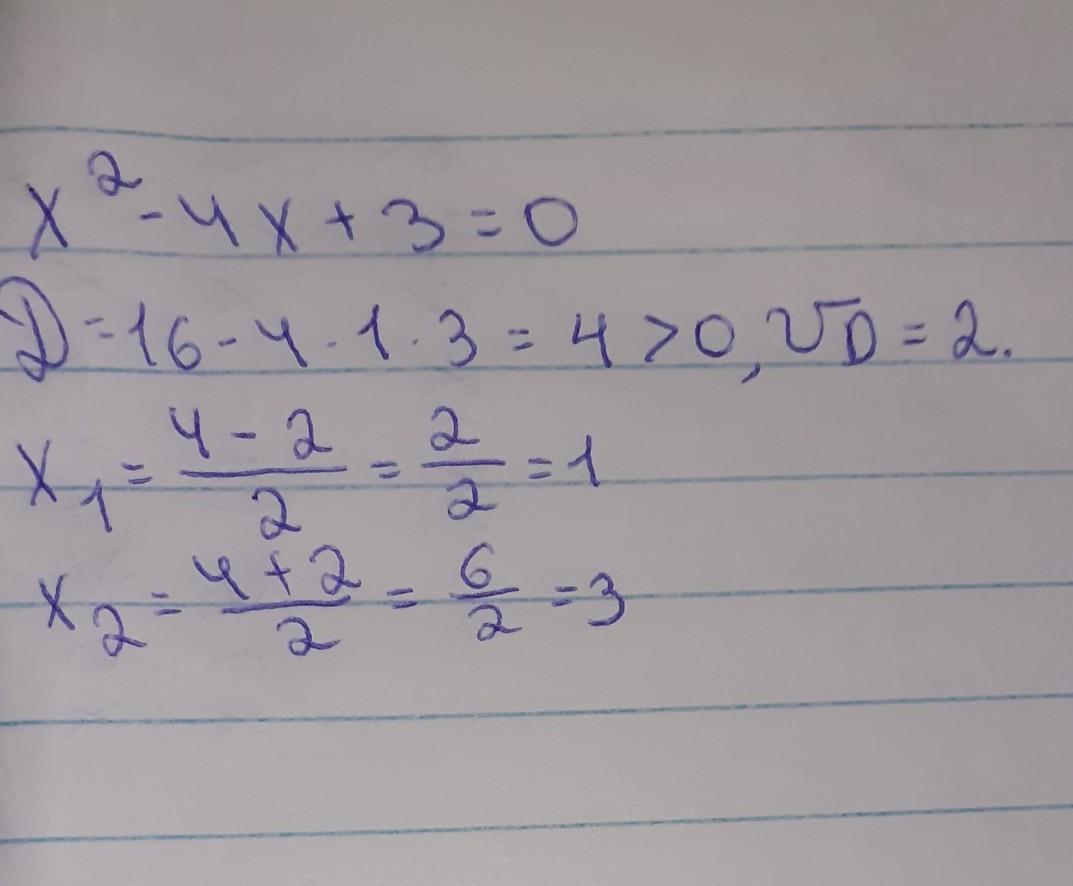 x² - 4x + 3 = 0
D = 16 - 4 · 1 · 3 = 4 > 0, √D = 2.
x₁ = (4 - 2)/2 = 2/2 = 1
x₂ = (4 + 2)/2 = 6/2 = 3